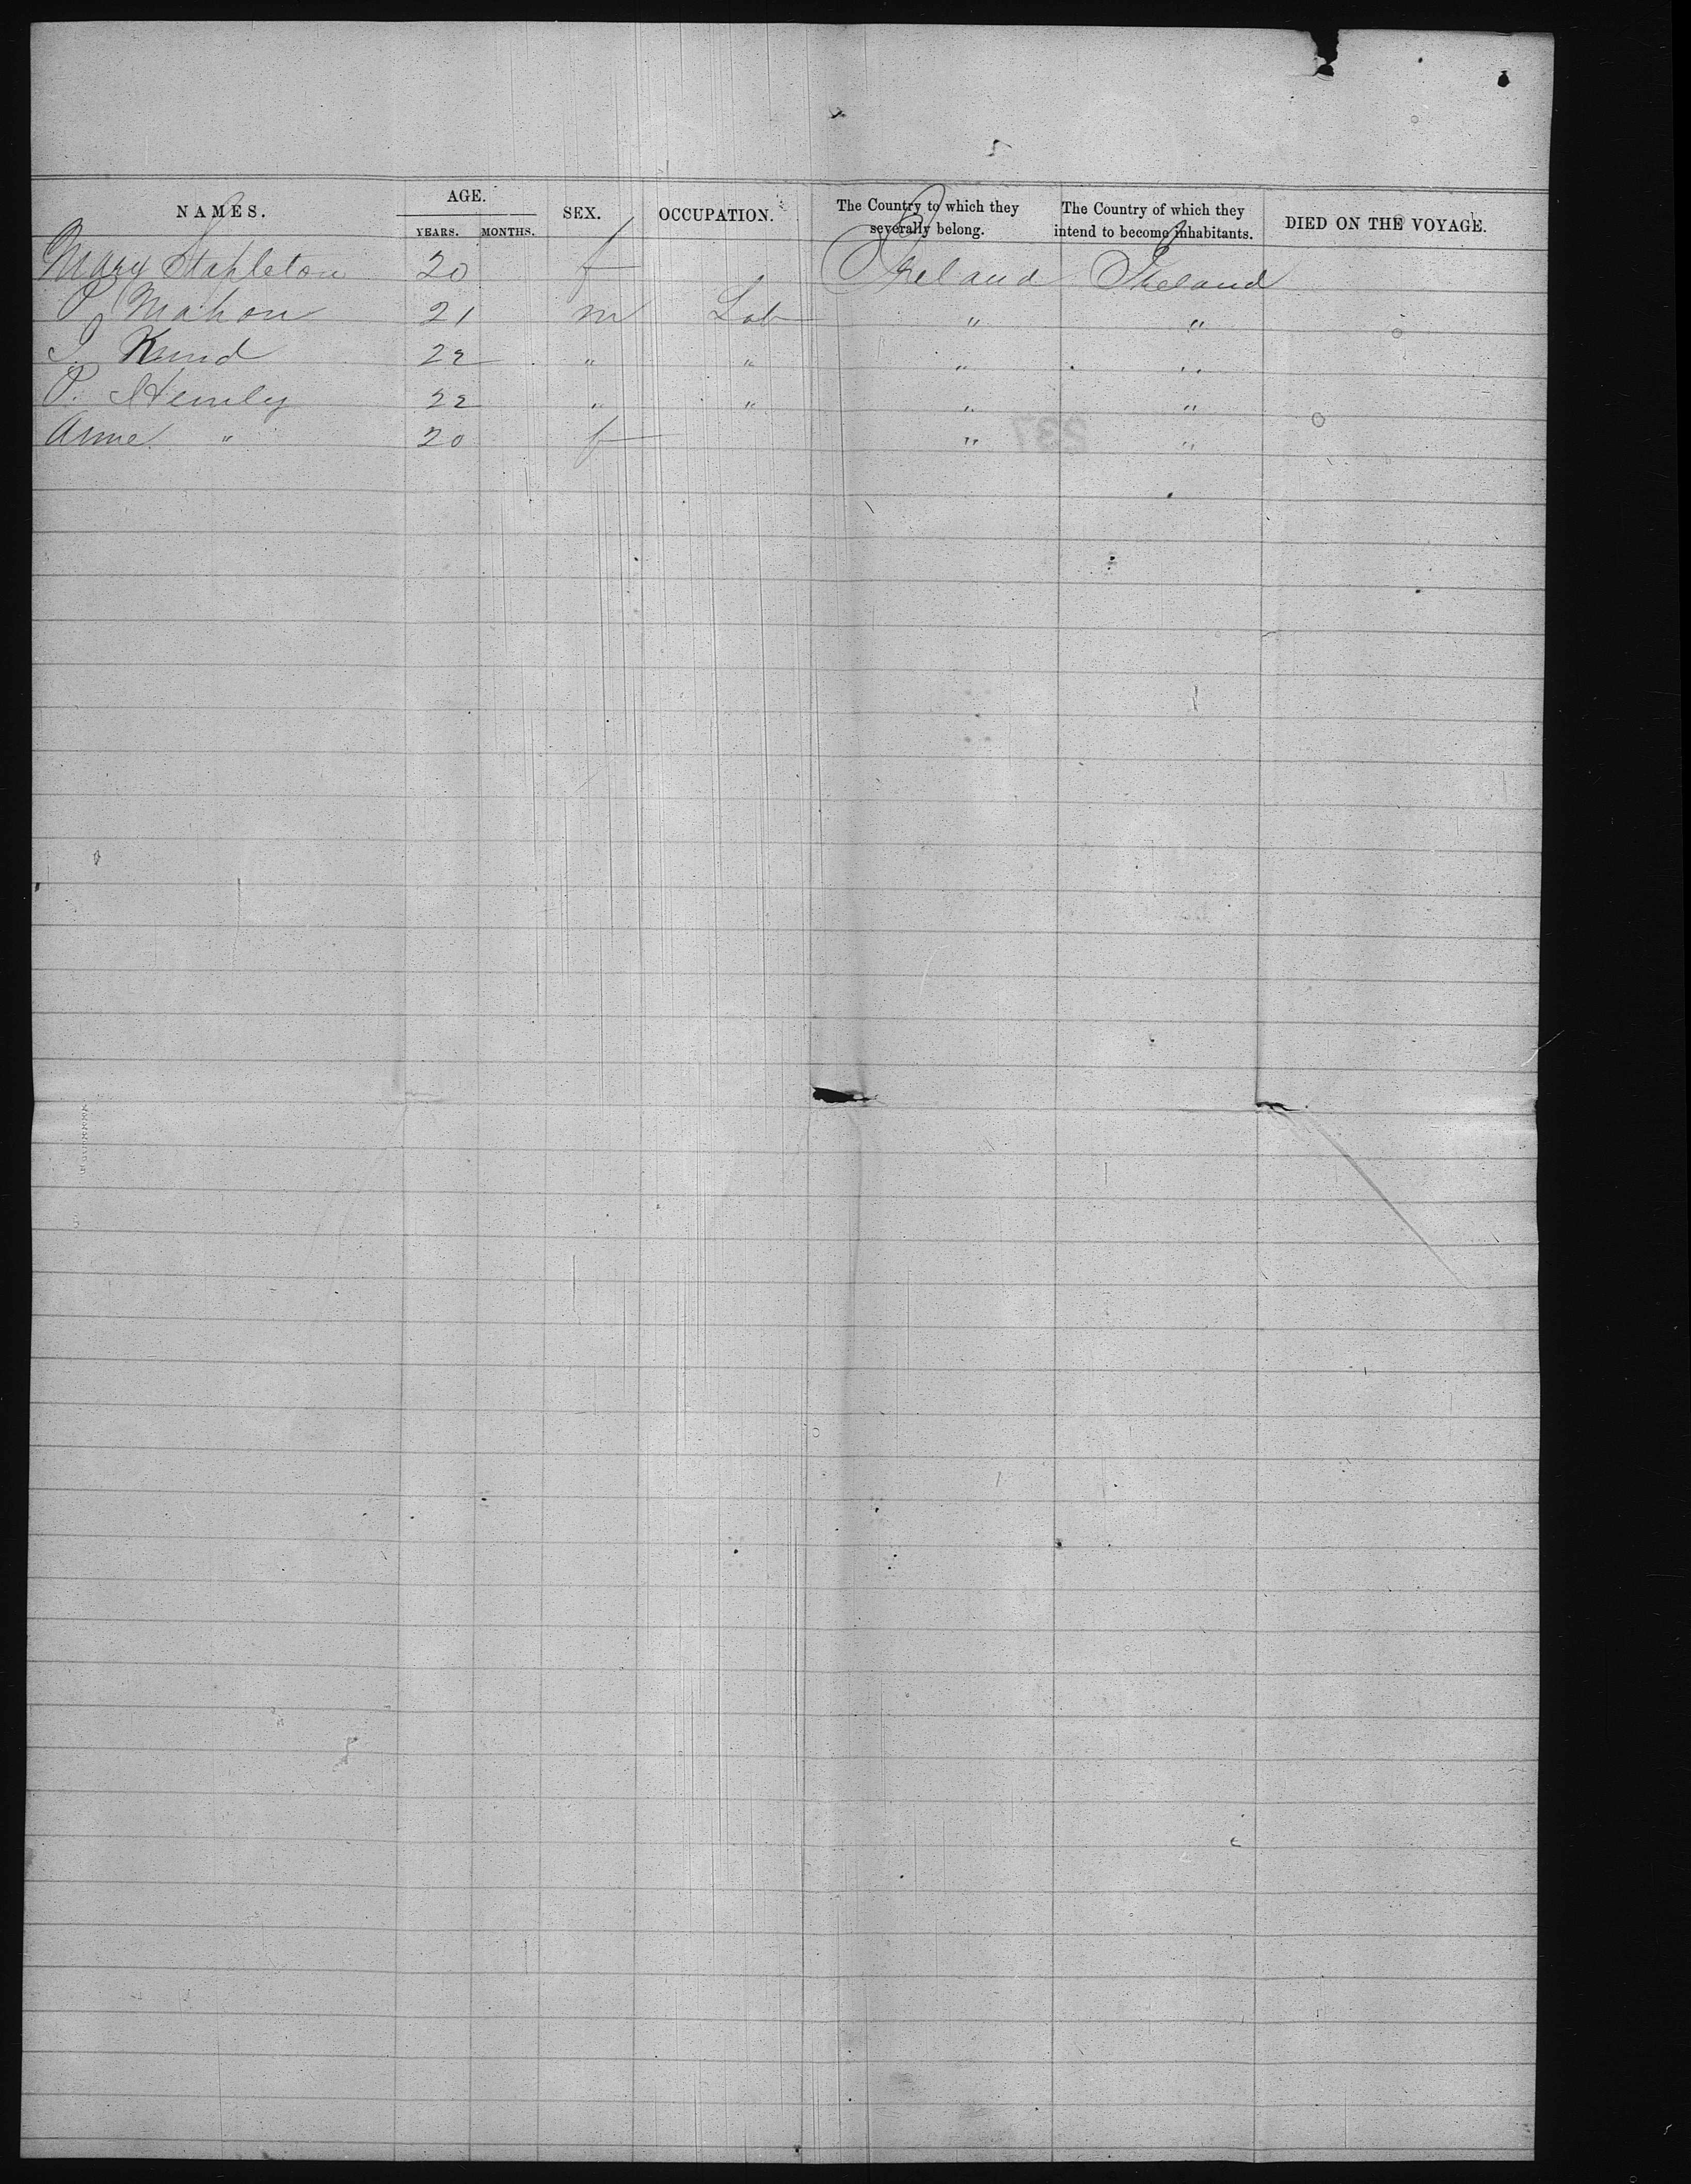 NAMES. AGE. YEARS. MONTHS. SEX. OCCUPATION. The Country to which they severally belong. The Country of which they intend to become inhabitants. DIED ON THE VOYAGE.
Mary Stapleton 20 f Ireland Ireland
P Mahon 21 m Lab " "
22 " " " "
P. 22 " " " "
Anne " 20 f " "
237